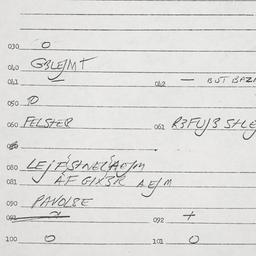 030 O
040 GBLEJMT
041 — 042 — BUT BAZA
050 O
060 FELSTER 061 R3FUJ3 SHLE
080 LEJFSHNELAEJM
081 AF GIX3R AEJM
090 PAVOLSE
091 ~ 092 +
100 O 101 O